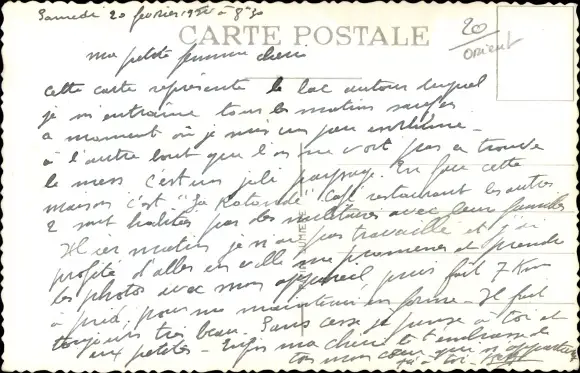 Samedi 20 février 19 à 8h30
CARTE POSTALE
20
orient
ma petite femme chérie
cette carte représente le lac autour duquel
je m'entraine tous les matins sauf
a moment où je suis un peu
à l'autre bout que l'on ne voit pas se trouve
le mess. C'est un joli paysage. En face cette
maison c'est "La Rotonde" Café restaurant les autres
2 sont habités par des militaires avec leur familles
Hier matin je n'ai pas travaillé et j'ai
profité d'aller en ville me promener et prendre
des photos avec mon appareil puis fait 7 Km
à pied, pour me maintenir en forme. Il fait
toujours très beau. Sans cesse je pense à toi et
aux petits. Enfin ma chérie je t'embrasse de
tout mon cœur qui n'appartient
qu'à toi.